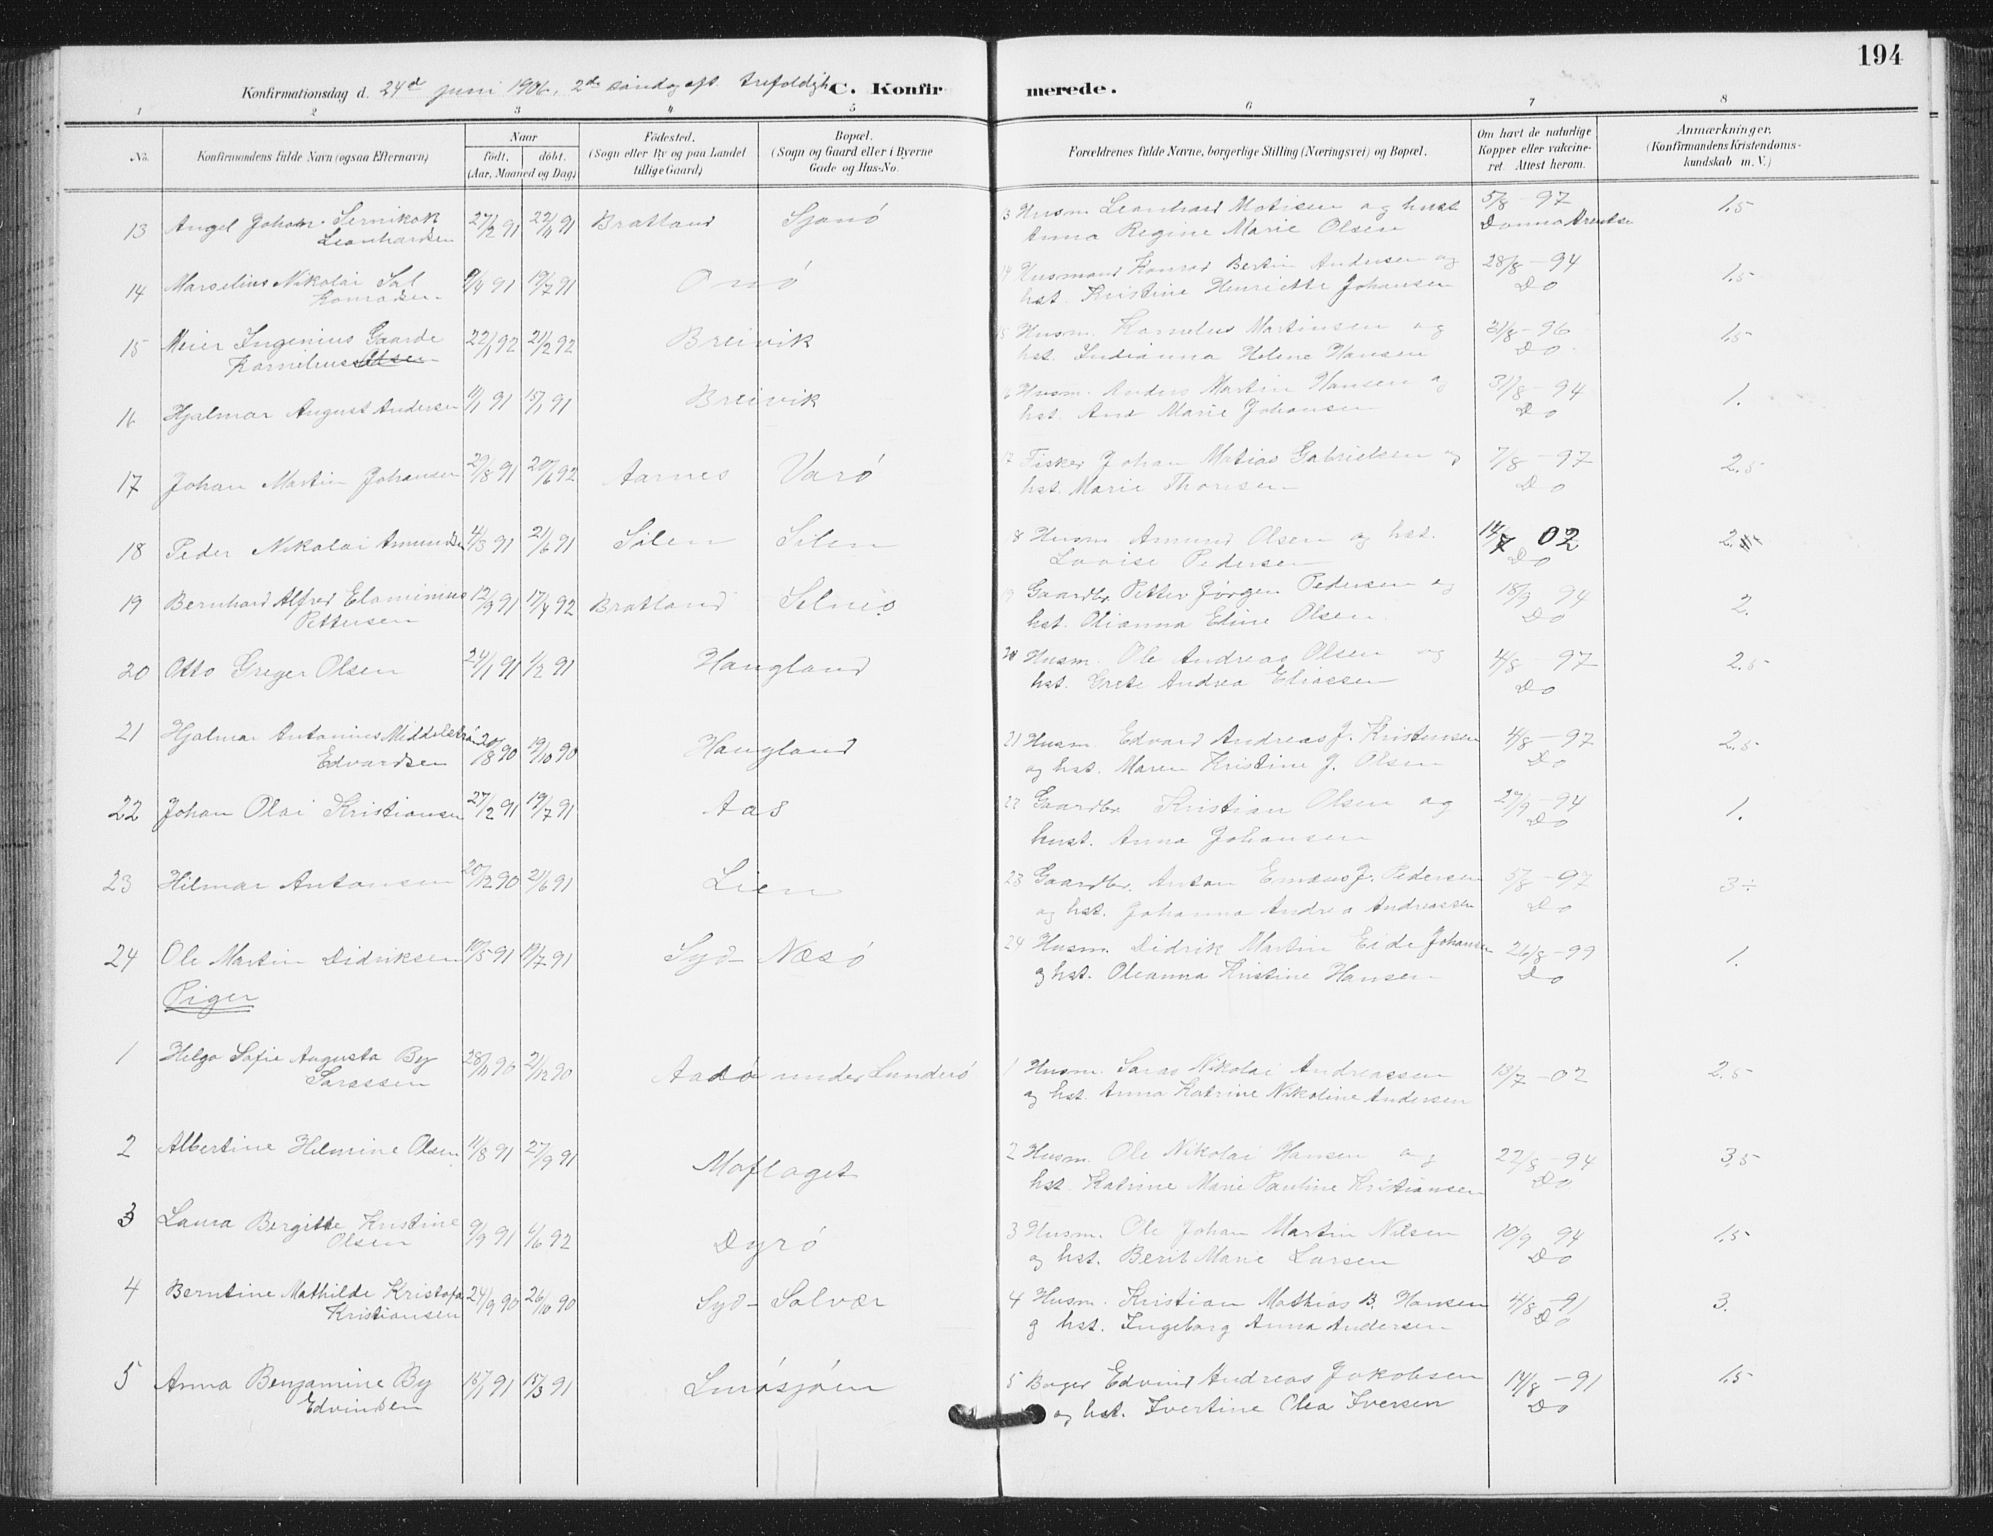 194
Konfirmationsdag d. 24de juni 1906, 2den søndag eft. trefoldigh. C. Konfirmerede.
1 2 3 4 5 6 7 8
No. Konfirmandens fulde Navn (ogsaa Efternavn) Naar født. døbt. (Aar, Maaned og Dag) Fødested. (Sogn eller By og paa Landet tillige Gaard) Bopæl. (Sogn og Gaard eller i Byerne Gade og Hus-No. Forældrenes fulde Navne, borgerlige Stilling (Næringsvei) og Bopæl. Om havt de naturlige Kopper eller vakcineret. Attest herom. Anmærkninger. (Konfirmandens Kristendomskundskab m. V.)
13 Angel Johan 27/2 91 22/11 91 Bratland Sjonö 3 Husm. Leonhard Matisen og hust 5/8 - 97 1.5
Leonhardsen Anna Regine Marie Olsen Dønna
14 Marselius Nikolai Sal 9/4 91 19/7 91 Onö 14 Husmand Konrad Bertin Andersen og 28/8 - 94 1.5
Konradsen hst. Kristine Henriette Johansen Do
15 Meier Ingenius Gaarde 22/1 92 21/2 92 Breivik 15 Husm. Kornelius Martinsen og 31/8 - 96 1.5
Kornelius hst. Indianna Helene Hansen Do
16 Hjalmar August Andersen 10/1 91 15/1 91 Breivik 6 Husm. Anders Martin Hansen og 31/8 - 94 1.
hst. Ane Marie Johansen Do
17 Johan Martin Johansen 29/8 91 20/6 92 Aarnes Varö 17 Fisker Johan Matias Gabrielsen og 7/8 - 97 2.5
hst. Marie Thoresen Do
18 Peder Nikolai Amundsen 4/3 91 21/6 91 Silen Silen 8 Husm. Amund Olsen og hst. 14/7 02 2.
Lovise Pedersen Do
19 Bernhard Alfred Elaminius 12/9 91 17/4 92 Bratland Selnis 19 Gaardbr. Petter Jørgen Pedersen og 18/9 94 2.
Pettersen hst. Olianna Eline Olsen. Do
20 Otto Greger Olsen 24/1 91 1/2 91 Haugland 20 Husm. Ole Andreas Olsen og 4/8 - 97 2.5
hst. Grete Andrea Eliassen Do
21 Hjalmar Antonius Middelskrön 20/8 90 19/10 90 Haugland 21 Husm. Edvard Andreas J. Kristensen 4/8 - 97 2.5
Edvardsen og hst. Maren Kristine J. Olsen Do
22 Johan Olai Kristiansen 27/2 91 19/7 91 Aas 22 Gaardbr Kristian Olsen og 27/9 - 94 1.
hust. Anna Johansen Do
23 Hilmar Antonsen 20/12 90 21/6 91 Lien 23 Gaardbr. Anton Emæus J. Pedersen 5/8 - 97 3÷
og hst. Johanna Andrea Andreassen Do
24 Ole Martin Didriksen 10/5 91 19/7 91 Syd-Næsö 24 Husm. Didrik Martin Eide Johansen 26/8 - 99 1.
og hst. Oleanna Kristine Hansen Do
Piger
1 Helga Sofie Augusta By 28/11 90 21/12 90 Aadö under Lunderö 1 Husm. Saras Nikolai Andreassen 13/7 - 02 2.5
Sarassen og hst. Anna Katrine Nikoline Andersen
2 Albertine Helmine Olsen 11/8 91 27/9 91 Moflaget 2 Husm. Ole Nikolai Hansen og 22/8 - 94 3.5
hst. Katrine Marie Pauline Kristiansen Do
3 Laura Bergitte Kristine 9/9 91 6/6 92 Dyrö 3 Husm. Ole Johan Martin Nilsen 10/9 94 1.5
Olsen og hst. Berit Marie Larsen Do
4 Berntine Mathilde Kristofa 24/9 90 26/10 90 Syd-Solvær 4 Husm. Kristian Mathias B. Hansen 4/8 - 91 3.
Kristiansen og hst. Ingeborg Anna Andersen Do
5 Anna Benjamine By 15/1 91 15/3 91 Smösjöen 5 Borger Edvind Andreas Jakobsen 14/8 - 91 1.5
Edvindsen og hst. Ivertine Olea Iversen Do